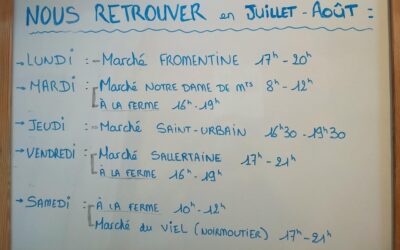 NOUS RETROUVER en JUILLET - AOÛT :
→ LUNDI : - Marché FROMENTINE 17h - 20h
→ MARDI : - Marché NOTRE DAME DE mts 8h - 12h
À LA FERME 16h - 19h
→ JEUDI : - Marché SAINT-URBAIN 16h30 - 19h30
→ VENDREDI : - Marché SALLERTAINE 17h - 21h
À LA FERME 16h - 19h
→ SAMEDI : - À LA FERME 10h - 12h
Marché du VIEL (NOIRMOUTIER) 17h - 21h